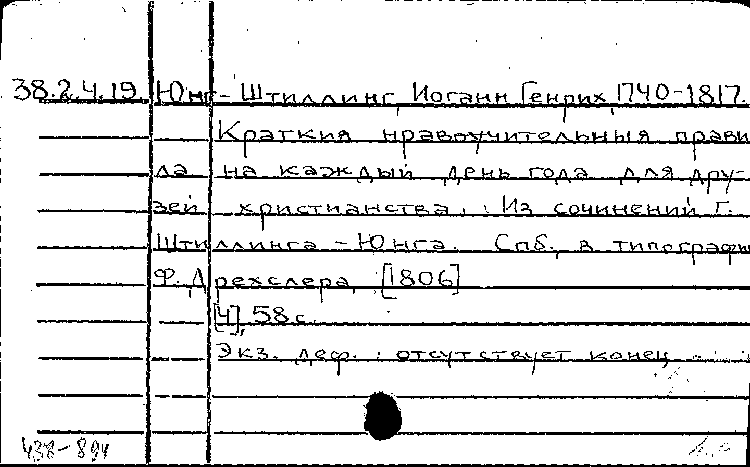 38.2.4.19 Юнг-Штиллинг, Иоганн Генрих, 1740-1817.
Краткия нравоучительныя прави
ла на каждый день года для дру-
зей христианства.: Из сочинений Г.
Штиллинга-Юнга. Спб., в типографи
Ф. Дрехслера, [1806]
[4], 58 с.
Экз. деф.: отсутствует конец
438-894